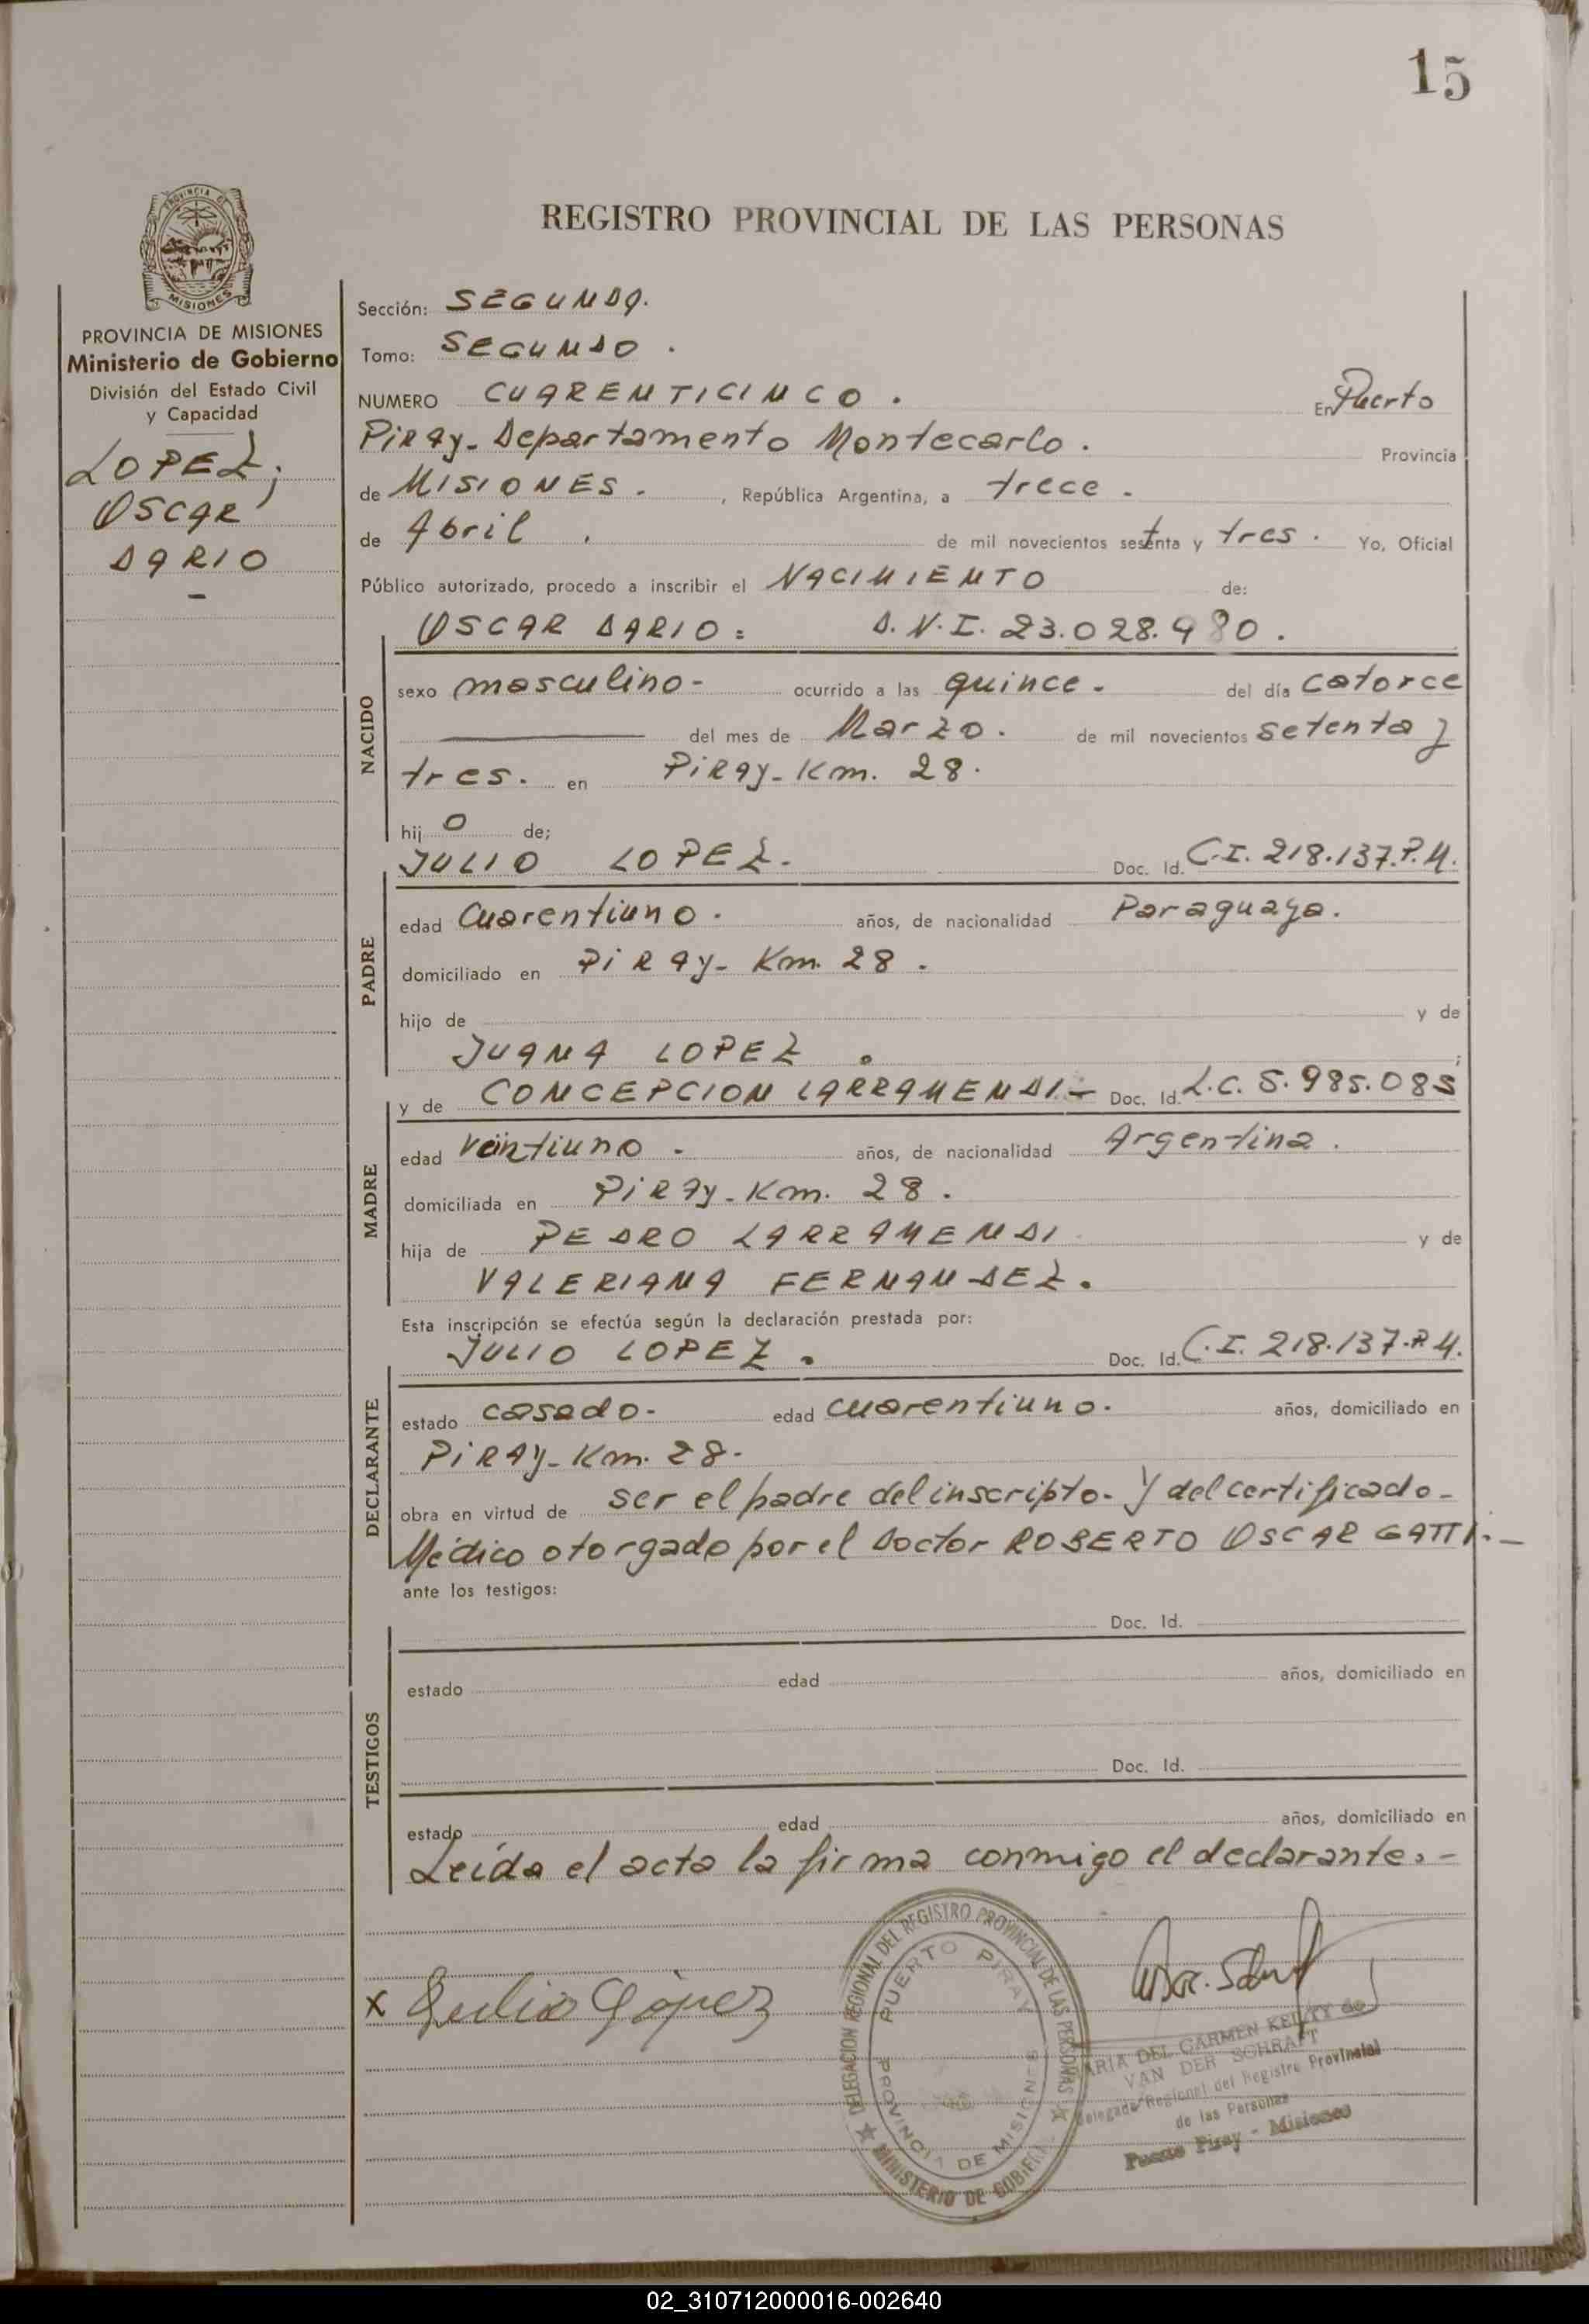 15
PROVINCIA DE
MISIONES
PROVINCIA DE MISIONES
Ministerio de Gobierno
División del Estado Civil
y Capacidad
LOPEZ;
OSCAR
DARIO
REGISTRO PROVINCIAL DE LAS PERSONAS
Sección: SEGUNDA.
Tomo: SEGUNDO.
NUMERO CUARENTICINCO. En Puerto
Piray- Departamento Montecarlo. Provincia
de MISIONES. , República Argentina, a trece.
de Abril . de mil novecientos setenta y tres. Yo, Oficial
Público autorizado, procedo a inscribir el NACIMIENTO de:
OSCAR DARIO= D.N.I. 23.028.980.
NACIDO
sexo masculino- ocurrido a las quince. del día catorce
del mes de Marzo. de mil novecientos setenta y
tres. en PiRAy-Km. 28.
hij o de;
JULIO LOPEZ. Doc. Id. C.I. 218.137.P.M.
PADRE
edad Cuarentiuno. años, de nacionalidad Paraguaya.
domiciliado en PiRAy- Km. 28.
hijo de y de
JUANA LOPEZ . ;
y de CONCEPCION LARRAMENDI.- Doc. Id. L.C. 5.985.085
MADRE
edad veintiuno. años, de nacionalidad Argentina.
domiciliada en PiRAy-Km. 28.
hija de PEDRO LARRAMENDI y de
VALERIANA FERNANDEZ.
Esta inscripción se efectúa según la declaración prestada por:
JULIO LOPEZ. Doc. Id. C.I. 218.137.P.M.
DECLARANTE
estado casado- edad cuarentiuno. años, domiciliado en
PiRAy-Km. 28.
obra en virtud de ser el padre del inscripto- y del certificado-
Médico otorgado por el Doctor ROBERTO OSCAR GATTI.-
ante los testigos:
Doc. Id.
TESTIGOS
estado edad años, domiciliado en
Doc. Id.
estado edad años, domiciliado en
Leída el acta la firma conmigo el declarante.-
x Julio López
DELEGACION REGIONAL DEL REGISTRO PROVINCIAL DE LAS PERSONAS
MINISTERIO DE GOBIERNO
PUERTO PIRAY
PROVINCIA DE MISIONES
MARIA DEL CARMEN de
VAN DER SCHRAFT
Delegada Regional del Registro Provincial
de las Personas
Puerto Piray - Misiones
02_310712000016-002640